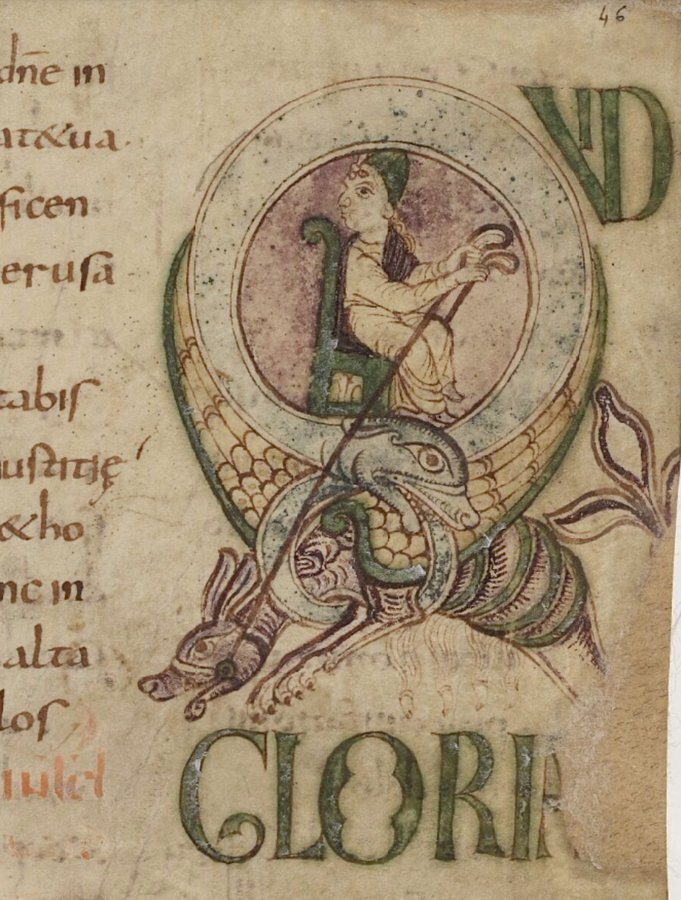 46
dn̄e in
at&ua
ficen
erusa
tabis
iustitię
&ho
nc in
alta
los
QVID
GLORIA